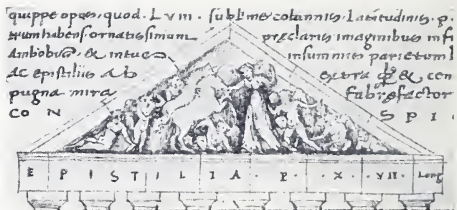 quippe opes, quod. LVIII. sublimes colomnis. Latitudinis. p.
Hum habens ornatissimum præclaris imaginibus inf
Ambobus. & intue in summis parietum l
Ac epistiliis Ab extra & cen
pugna mira fabrefactor
CON SPI.
EPISTILIA. P. X. VII. Long